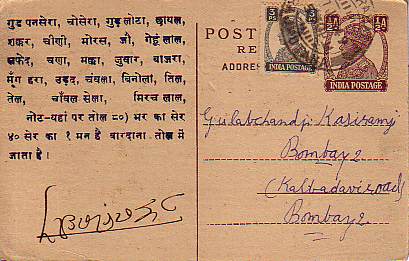 गुड पनसेरा, चोसेरा, गुड़ लोटा, छायल,
शक्कर, चीणी, मोरस, जौ, गेहूं लाल,
सफेद, चणा, मक्का, जुवार, बाजरा,
मूँग हरा, उड़द, चंवला, बिनोला, तिल,
तेल, चाँवल सेला, मिरच लाल,
नोट-यहां पर तोल ८०) भर का सेर
४० सेर का १ मन है बारदाना तोल में
जाता है।
POST
RE
ADDRE
3 PS
INDIA POSTAGE
½A
½A
INDIA POSTAGE
Gulabchandji Kasiramji
Bombay 2
(Kalbadavi road)
Bombay 2